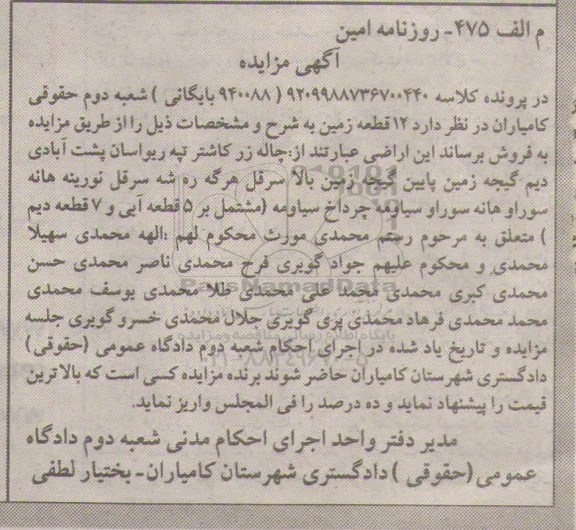 م الف ۴۷۵ـ روزنامه امین
آگهی مزایده
در پرونده کلاسه ۹۲۰۹۹۸۸۷۳۶۷۰۰۴۴۰ ( ۹۴۰۰۸۸ بایگانی ) شعبه دوم حقوقی
کامیاران در نظر دارد ۱۲ قطعه زمین به شرح و مشخصات ذیل را از طریق مزایده
به فروش برساند این اراضی عبارتند از:چاله زر کاشتر تپه ریواسان پشت آبادی
دیم گیجه زمین پایین گیجه زمین بالا سرقل هرگه ره شه سرقل نورینه هانه
سوراو هانه سوراو سیاومه چرداخ سیاومه (مشتمل بر ۵ قطعه آبی و ۷ قطعه دیم
) متعلق به مرحوم رستم محمدی مورث محکوم لهم :الهه محمدی سهیلا
محمدی و محکوم علیهم جواد گویری فرح محمدی ناصر محمدی حسن
محمدی کبری محمدی محمد علی محمدی طلا محمدی یوسف محمدی
محمد محمدی فرهاد محمدی پری گویری جلال محمدی خسرو گویری جلسه
مزایده و تاریخ یاد شده در اجرای احکام شعبه دوم دادگاه عمومی (حقوقی)
دادگستری شهرستان کامیاران حاضر شوند برنده مزایده کسی است که بالاترین
قیمت را پیشنهاد نماید و ده درصد را فی المجلس واریز نماید.
مدیر دفتر واحد اجرای احکام مدنی شعبه دوم دادگاه
عمومی (حقوقی ) دادگستری شهرستان کامیاران ـ بختیار لطفی
ParsNamadData